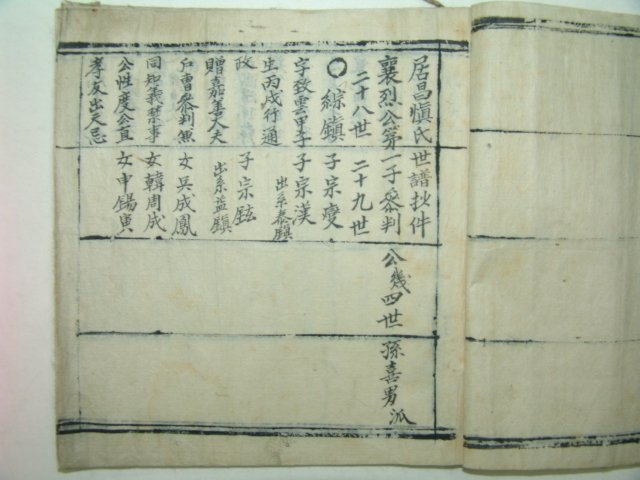 居昌愼氏世譜抄件
襄烈公第一子參判公幾四世孫喜男派
二十八世 二十九世
綜鎭 子宗燮
字致雲甲 子宗漢
生丙戌行通 出系泰鎭
政 子宗鉉
贈嘉善大夫 出系益鎭
戶曹參判兼 女吳成鳳
同知義禁事 女韓周成
公性度公直 女申錫寅
孝友出天忌